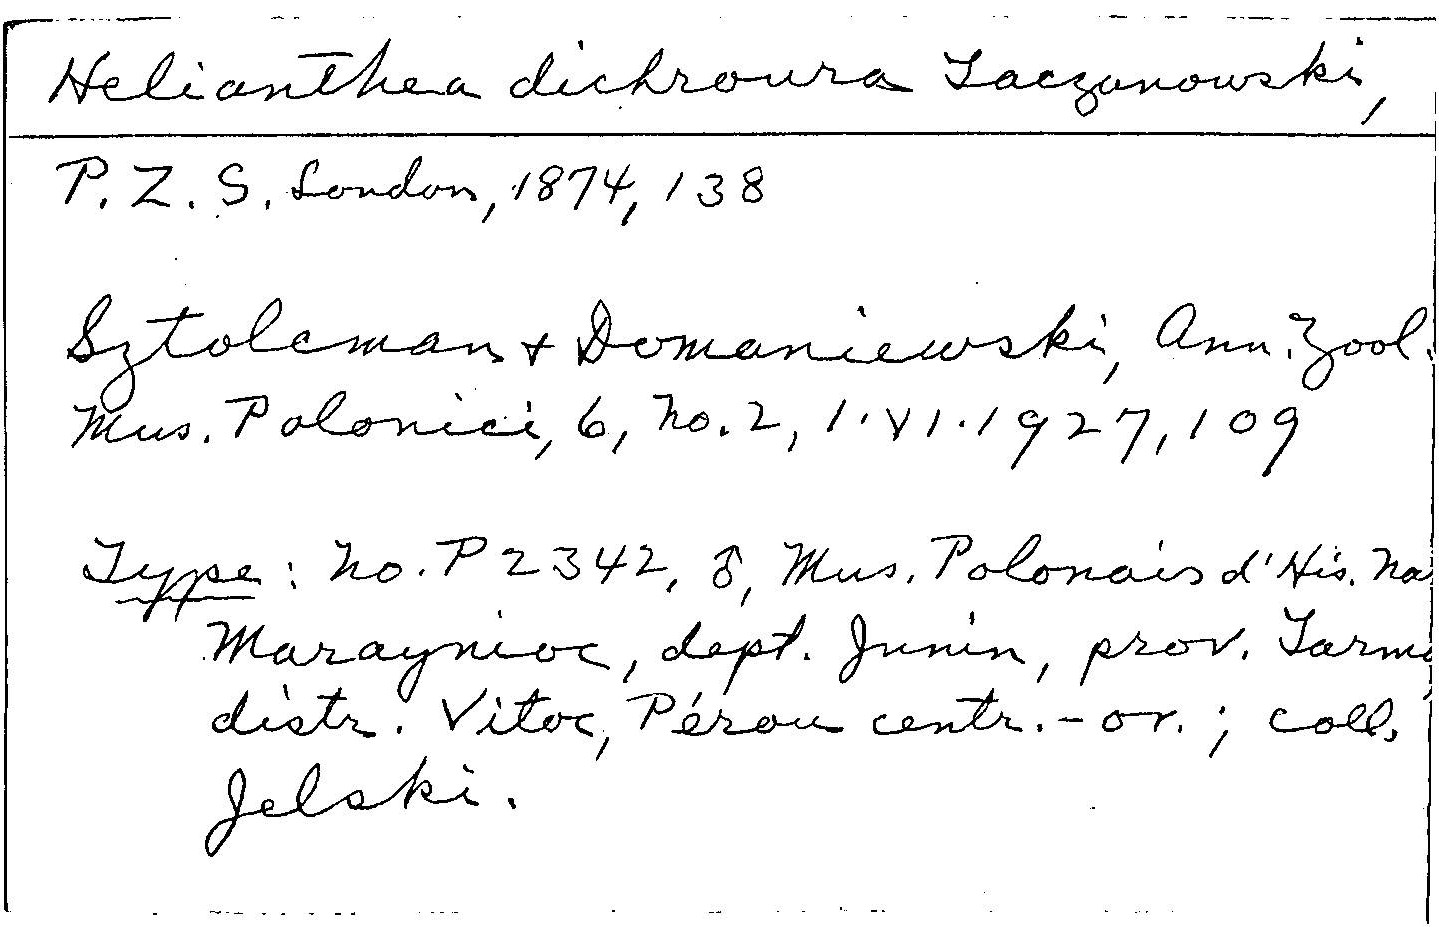 Helianthea dichroura Taczanowski,
P. Z. S. London, 1874, 138
Sztolcman + Domaniewski, Ann. Zool.
Mus. Polonici, 6, no. 2, 1·VI·1927, 109
Type: no. P2342, ♂, Mus. Polonais d'His. Na
Maraynioc, dept. Junin, prov. Tarma
distr. Vitoc, Pérou centr.-or.; coll.
Jelski.